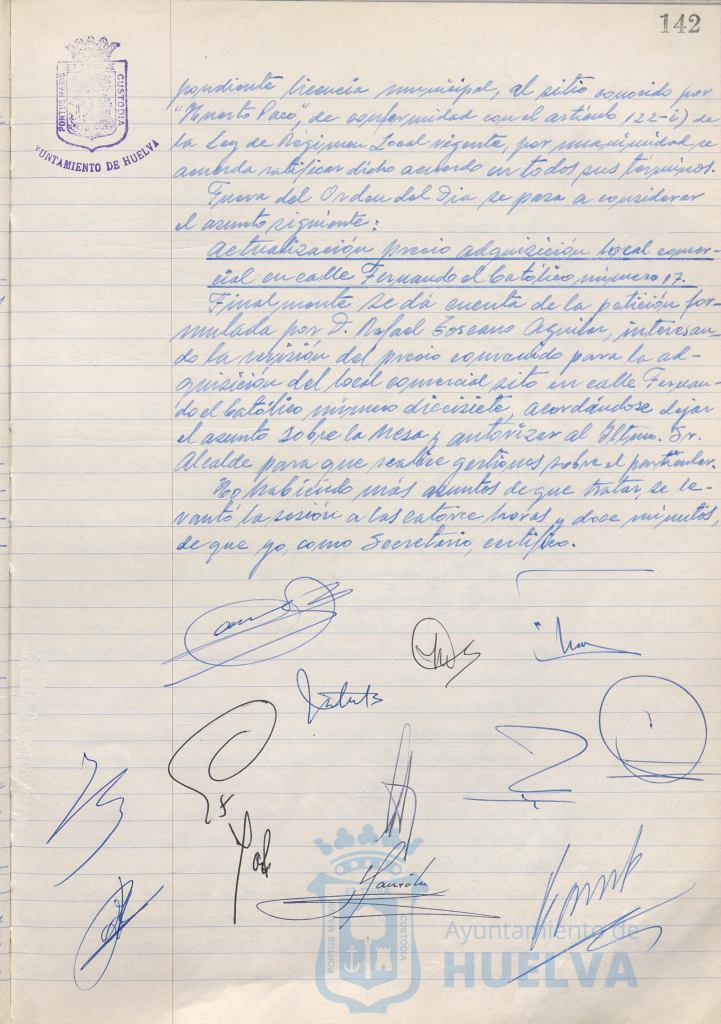 142
PORTUS MARIS ET TERRAE CUSTODIA
AYUNTAMIENTO DE HUELVA
pondiente licencia municipal, al sitio conocido por
"Huerto Paco", de conformidad con el artículo 122-i) de
la Ley de Régimen Local vigente, por unanimidad, se
acuerda ratificar dicho acuerdo en todos sus términos.
Fuera del Orden del Dia se pasa a considerar
el asunto siguiente:
Actualización precio adquisición local comer-
cial en calle Fernando el Católico, número 17.
Finalmente se dá cuenta de la petición for-
mulada por D. Rafael Toscano Aguilar, interesan-
do la revisión del precio convenido para la ad-
quisición del local comercial sito en calle Fernan-
do el Católico número diecisiete, acordándose dejar
el asunto sobre la Mesa y autorizar al Iltmo. Sr.
Alcalde para que realice gestiones sobre el particular.
No habiendo más asuntos de que tratar, se le-
vantó la sesión a las catorce horas y doce minutos,
de que yo, como Secretario, certifico.
PORTUS MARIS CUSTODIA
Ayuntamiento de
HUELVA